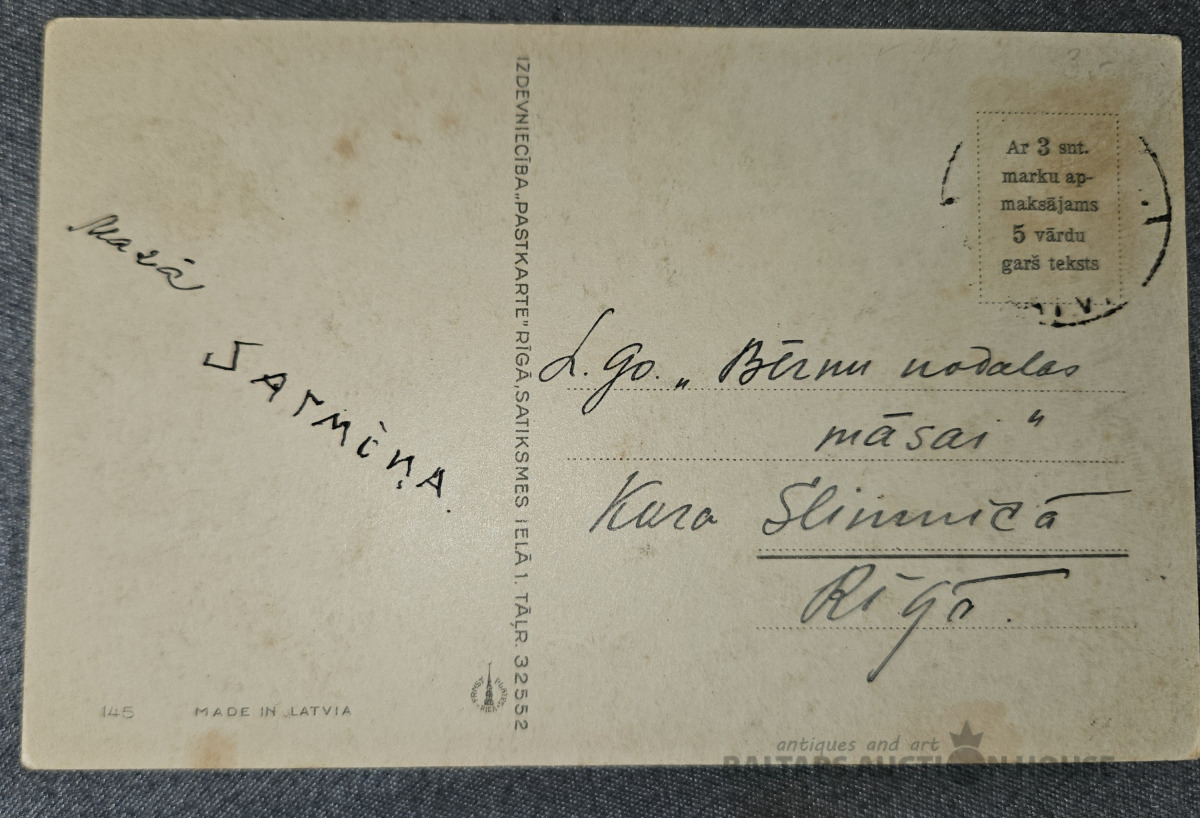 Mazā
SARMIŅA.
IZDEVNIECĪBA „PASTKARTE" RĪGĀ, SATIKSMES IELĀ 1. TĀĻR. 32552
145
MADE IN LATVIA
Ar 3 sut.
marku ap-
maksājams
5 vārdu
garš teksts
L. Go. „Bērnu nodaļas
māsai"
Kara Slimnīcā
Rīgā.
antiques and art
BALTARS AUCTION HOUSE